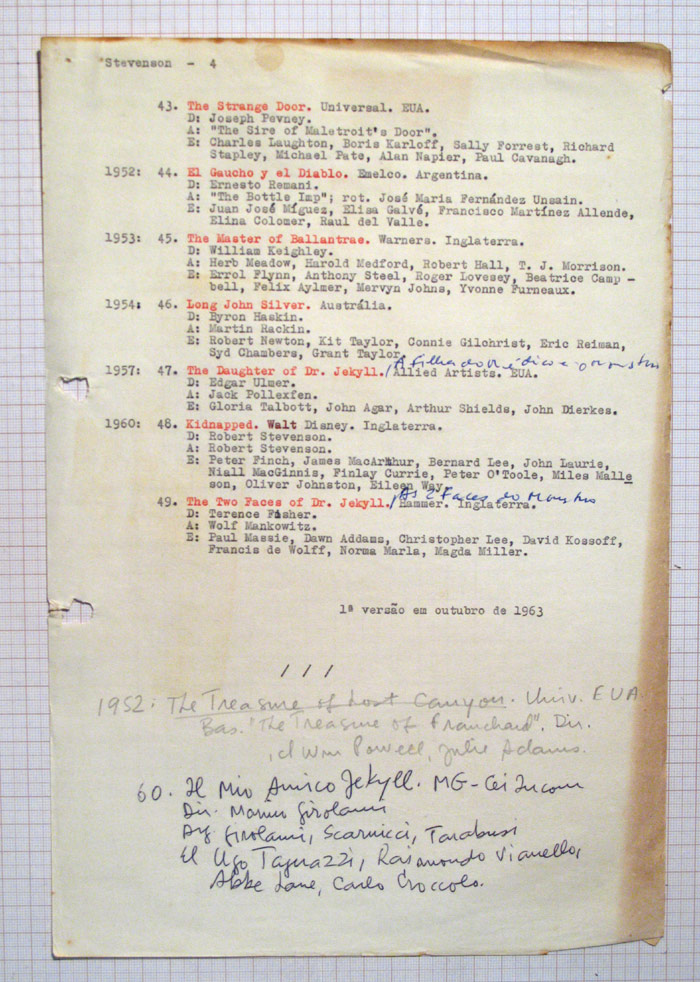 Stevenson - 4
43. The Strange Door. Universal. EUA.
D: Joseph Pevney.
A: "The Sire of Maletroit's Door".
E: Charles Laughton, Boris Karloff, Sally Forrest, Richard
Stapley, Michael Pate, Alan Napier, Paul Cavanagh.
1952: 44. El Gaucho y el Diablo. Emelco. Argentina.
D: Ernesto Remani.
A: "The Bottle Imp"; rot. José Maria Fernández Unsain.
E: Juan José Míguez, Elisa Galvé, Francisco Martínez Allende,
Elina Colomer, Raul del Valle.
1953: 45. The Master of Ballantrae. Warners. Inglaterra.
D: William Keighley.
A: Herb Meadow, Harold Medford, Robert Hall, T. J. Morrison.
E: Errol Flynn, Anthony Steel, Roger Lovesey, Beatrice Camp -
bell, Felix Aylmer, Mervyn Johns, Yvonne Furneaux.
1954: 46. Long John Silver. Austrália.
D: Byron Haskin.
A: Martin Rackin.
E: Robert Newton, Kit Taylor, Connie Gilchrist, Eric Reiman,
Syd Chambers, Grant Taylor.
A filha do Médico e o monstro
1957: 47. The Daughter of Dr. Jekyll. Allied Artists. EUA.
D: Edgar Ulmer.
A: Jack Pollexfen.
E: Gloria Talbott, John Agar, Arthur Shields, John Dierkes.
1960: 48. Kidnapped. Walt Disney. Inglaterra.
D: Robert Stevenson.
A: Robert Stevenson.
E: Peter Finch, James MacArthur, Bernard Lee, John Laurie,
Niall MacGinnis, Finlay Currie, Peter O'Toole, Miles Malle
son, Oliver Johnston, Eileen Way.
As 2 Faces do Monstro
49. The Two Faces of Dr. Jekyll. Hammer. Inglaterra.
D: Terence Fisher.
A: Wolf Mankowitz.
E: Paul Massie, Dawn Addams, Christopher Lee, David Kossoff,
Francis de Wolff, Norma Marla, Magda Miller.
1ª versão em outubro de 1963
/ / /
1952: The Treasure of Lost Canyon. Univ. EUA.
Bas. "The Treasure of Franchard". Dir.
Wm Powell, Julie Adams.
60. Il Mio Amico Jekyll. MG-Cei Incom
Dir. Marino Girolami
Arg Girolami, Scarnicci, Tarabusi
El Ugo Tognazzi, Raimondo Vianello,
Abbe Lane, Carlo Croccolo.